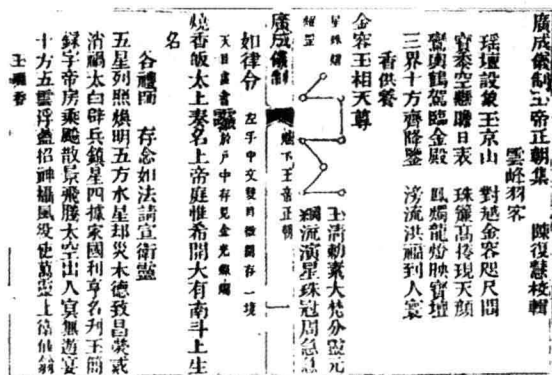 廣成儀制玉帝正朝集 陳復慧校輯
雲峰羽客
瑤壇設象玉京山 對越金容咫尺間
寶黍空懸瞻日表 珠簾高捲現天顏
鸞輿鶴駕臨金殿 鳳燭龍燈映寶壇
三界十方齊降鑒 滂流洪福到人寰
香供養
金容玉相天尊
玉清勅業大梵分靈元
綱流演星珠冠周急急
廣成儀制 玉帝正朝 一
如律令 左手中文雙時微開存一境
於戶中存見金光
燒香皈太上奏名上帝庭惟希開大有南斗上生
名
各禮師 存念如法請宣衛靈
五星列照煥明五方水星却災木德致昌熒惑
消禍太白辟兵鎮星四據家國利亨名刋玉簡
錄字帝房乘飈散景飛騰太空出入冥無遊宴
十方五雲浮蓋招神攝風役使萬靈上衛仙翁